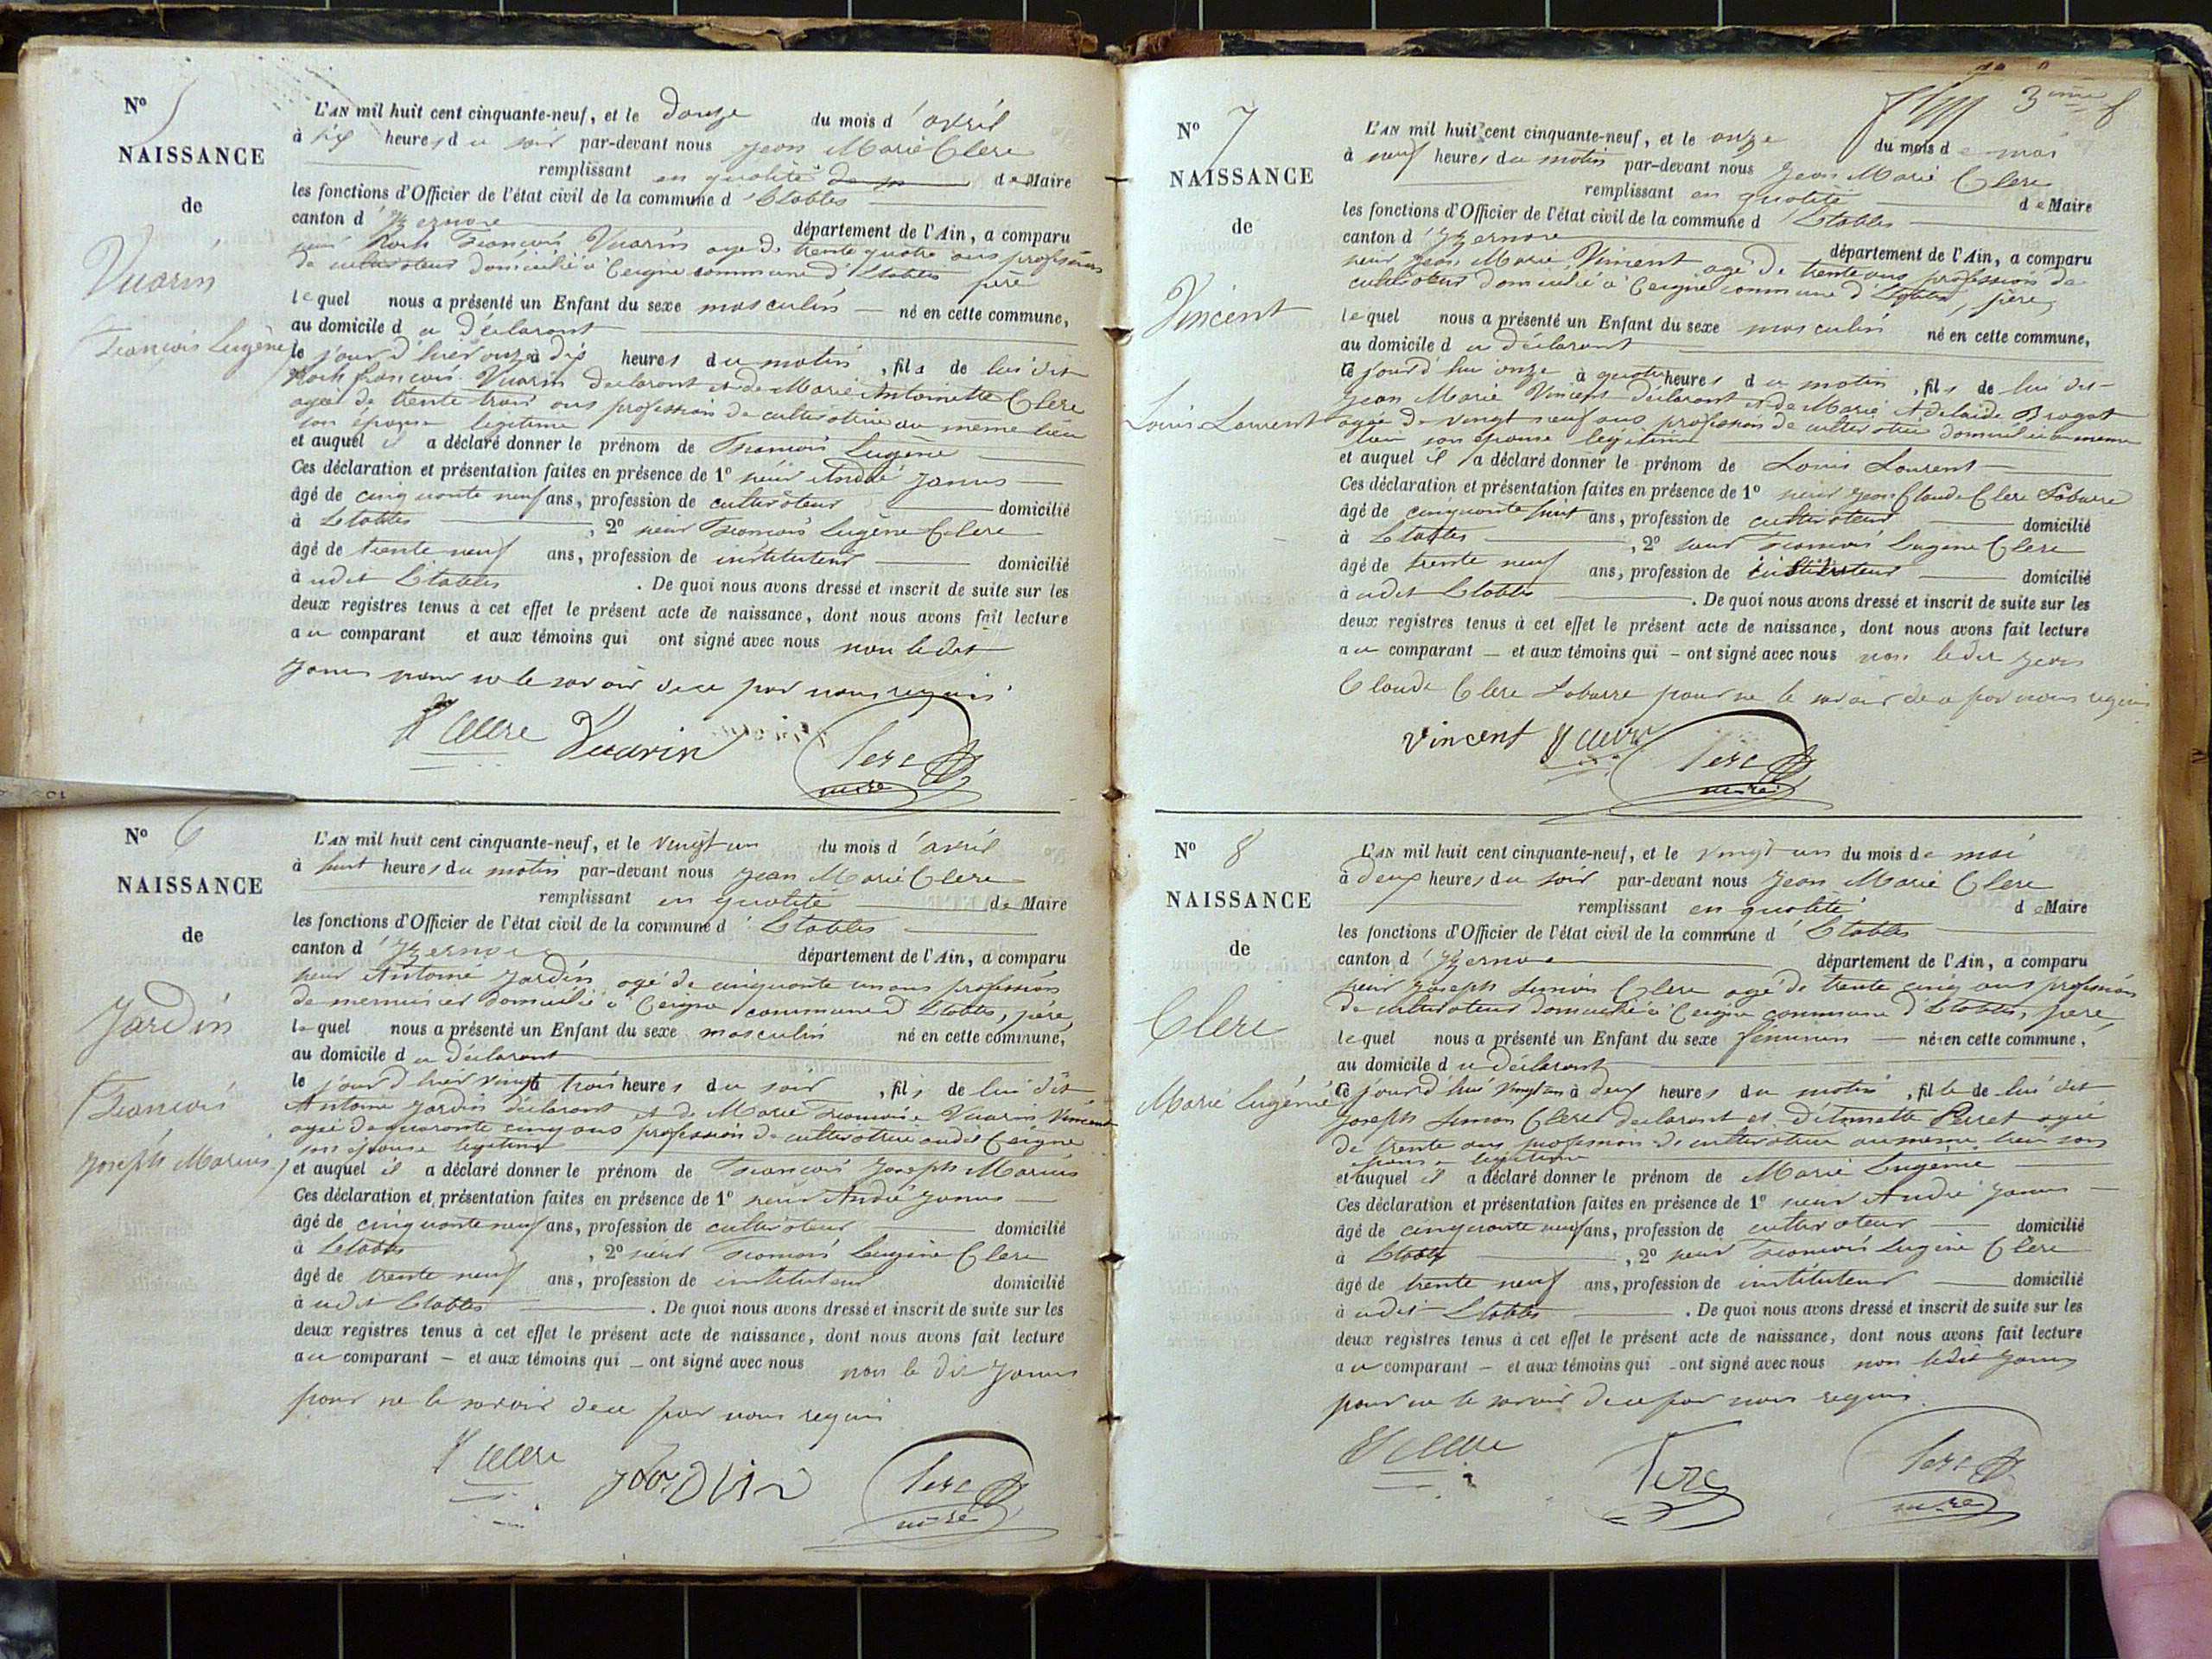 N° 5
NAISSANCE
de
Vuarin
François Eugène
L'AN mil huit cent cinquante-neuf, et le douze du mois d'avril
à six heures du soir par-devant nous Jean Marie Clerc
remplissant en qualité de Maire
les fonctions d'Officier de l'état civil de la commune d'Etables
canton d'Izernore département de l'Ain, a comparu
sieur Roch François Vuarin agé de trente quatre ans profession
de cultivateur domicilié à Ceigne commune d'Etables père
lequel nous a présenté un Enfant du sexe masculin né en cette commune,
au domicile du déclarant
le jour d'hier onze à dix heures du matin, fils de lui dit
Roch françois Vuarin déclarant et de Marie Antoinette Clerc
agée de trente trois ans profession de cultivatrice au même lieu
son épouse légitime
et auquel il a déclaré donner le prénom de François Eugène
Ces déclaration et présentation faites en présence de 1° sieur André Janus
âgé de cinquante neuf ans, profession de cultivateur domicilié
à Etables, 2° sieur François Eugène Clerc
âgé de trente neuf ans, profession de instituteur domicilié
à udit Etables. De quoi nous avons dressé et inscrit de suite sur les
deux registres tenus à cet effet le présent acte de naissance, dont nous avons fait lecture
au comparant et aux témoins qui ont signé avec nous non ledit
Janus pour ne le savoir de ce par nous requis
Clerc Vuarin Clerc
maire
N° 6
NAISSANCE
de
Jardin
François
Joseph Marius
L'AN mil huit cent cinquante-neuf, et le vingt un du mois d'avril
à huit heures du matin par-devant nous Jean Marie Clerc
remplissant en qualité de Maire
les fonctions d'Officier de l'état civil de la commune d'Etables
canton d'Izernore département de l'Ain, a comparu
sieur Antoine Jardin agé de cinquante un ans profession
de menuisier domicilié à Ceigne commune d'Etables, père,
lequel nous a présenté un Enfant du sexe masculin né en cette commune,
au domicile du déclarant
le jour d'hier vingt à trois heures du soir, fils de lui dit
Antoine Jardin déclarant et de Marie Françoise Vuarin Vincent
agée de quarante cinq ans profession de cultivatrice audit Ceigne
son épouse légitime
et auquel il a déclaré donner le prénom de François Joseph Marius
Ces déclaration et présentation faites en présence de 1° sieur André Janus
âgé de cinquante neuf ans, profession de cultivateur domicilié
à Etables, 2° sieur François Eugène Clerc
âgé de trente neuf ans, profession de instituteur domicilié
à udit Etables. De quoi nous avons dressé et inscrit de suite sur les
deux registres tenus à cet effet le présent acte de naissance, dont nous avons fait lecture
au comparant et aux témoins qui ont signé avec nous non le dit Janus
pour ne le savoir de ce par nous requis
Clerc Jardin Clerc
maire
3ème f
N° 7
NAISSANCE
de
Vincent
Louis Laurent
L'AN mil huit cent cinquante-neuf, et le onze du mois de mai
à neuf heures du matin par-devant nous Jean Marie Clerc
remplissant en qualité de Maire
les fonctions d'Officier de l'état civil de la commune d'Etables
canton d'Izernore département de l'Ain, a comparu
sieur Jean Marie Vincent agé de trente ans profession de
cultivateur domicilié à Ceigne commune d'Etables, père,
lequel nous a présenté un Enfant du sexe masculin né en cette commune,
au domicile du déclarant
ce jourd'hui onze à quatre heures du matin, fils de lui dit
Jean Marie Vincent déclarant et de Marie Adelaïde Bragat
agée de vingt neuf ans profession de cultivatrice domiciliée au meme
lieu son épouse légitime
et auquel il a déclaré donner le prénom de Louis Laurent
Ces déclaration et présentation faites en présence de 1° sieur Jean Claude Clerc Labarre
âgé de cinquante huit ans, profession de cultivateur domicilié
à Etables, 2° sieur François Eugène Clerc
âgé de trente neuf ans, profession de instituteur domicilié
à udit Etables. De quoi nous avons dressé et inscrit de suite sur les
deux registres tenus à cet effet le présent acte de naissance, dont nous avons fait lecture
au comparant et aux témoins qui ont signé avec nous non ledit Jean
Claude Clerc Labarre pour ne le savoir de ce par nous requis
Vincent Clerc Clerc
maire
N° 8
NAISSANCE
de
Clerc
Marie Eugénie
L'AN mil huit cent cinquante-neuf, et le vingt un du mois de mai
à deux heures du soir par-devant nous Jean Marie Clerc
remplissant en qualité de Maire
les fonctions d'Officier de l'état civil de la commune d'Etables
canton d'Izernore département de l'Ain, a comparu
sieur Joseph Simon Clerc agé de trente cinq ans profession
de cultivateur domicilié à Ceigne commune d'Etables, père,
lequel nous a présenté un Enfant du sexe féminin né en cette commune,
au domicile du déclarant
ce jourd'hui vingt un à deux heures du matin, fille de lui dit
Joseph Simon Clerc déclarant et d'Etiennette Perret agée
de trente ans profession de cultivatrice au même lieu son
épouse légitime
et auquel il a déclaré donner le prénom de Marie Eugénie
Ces déclaration et présentation faites en présence de 1° sieur André Janus
âgé de cinquante neuf ans, profession de cultivateur domicilié
à Etables, 2° sieur François Eugène Clerc
âgé de trente neuf ans, profession de instituteur domicilié
à udit Etables. De quoi nous avons dressé et inscrit de suite sur les
deux registres tenus à cet effet le présent acte de naissance, dont nous avons fait lecture
au comparant et aux témoins qui ont signé avec nous non ledit Janus
pour ne le savoir de ce par nous requis.
Clerc Clerc Clerc
maire